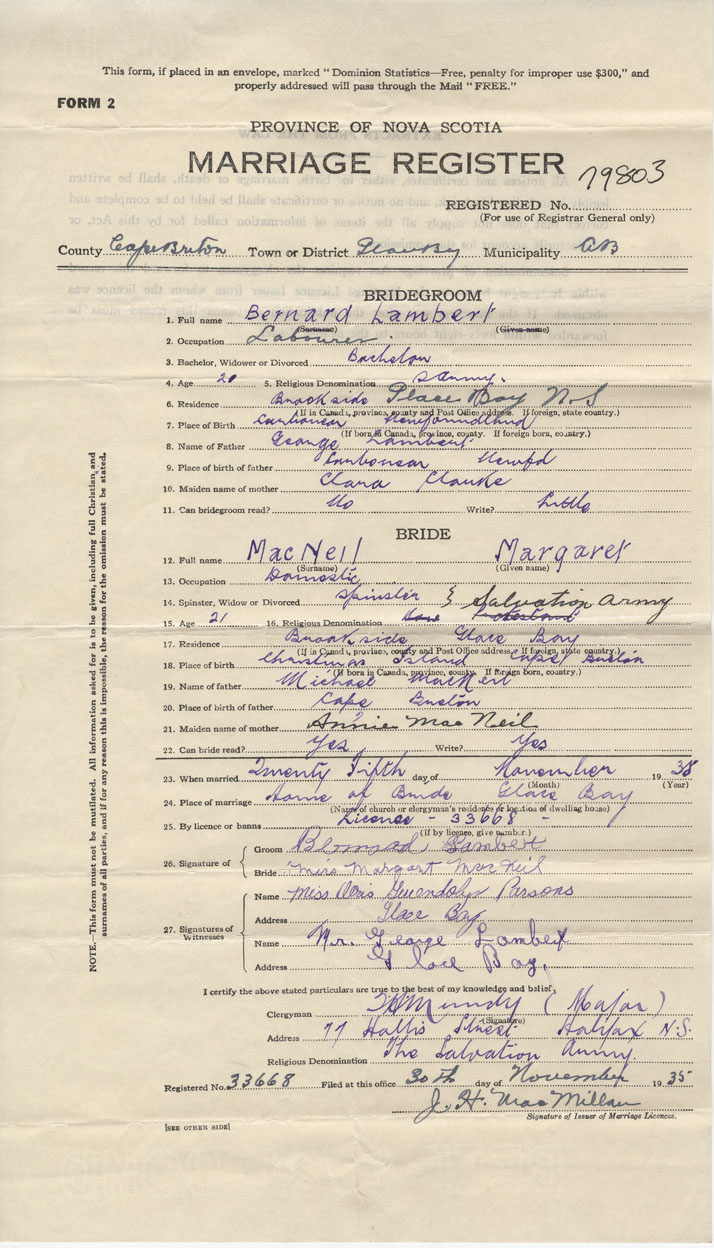 This form, if placed in an envelope, marked "Dominion Statistics—Free, penalty for improper use $300," and
properly addressed will pass through the Mail "FREE."
FORM 2
PROVINCE OF NOVA SCOTIA
MARRIAGE REGISTER 79803
REGISTERED No.
(For use of Registrar General only)
County Cape Breton Town or District Glace Bay Municipality CB
BRIDEGROOM
1. Full name Bernard Lambert
(Surname) (Given name)
2. Occupation Labourer
3. Bachelor, Widower or Divorced Bachelor
4. Age 20 5. Religious Denomination S Army.
6. Residence Brookside Glace Bay N.S
(If in Canada, province, county and Post Office address. If foreign, state country.)
7. Place of Birth Carbonear Newfoundland
(If born in Canada, province, county. If foreign born, country.)
8. Name of Father George Lambert
9. Place of birth of father Carbonear Newfd
10. Maiden name of mother Clara Clarke
11. Can bridegroom read? No Write? Little
BRIDE
12. Full name MacNeil Margaret
(Surname) (Given name)
13. Occupation Domestic
14. Spinster, Widow or Divorced Spinster } Salvation Army
15. Age 21 16. Religious Denomination Protestant
17. Residence Brookside Glace Bay
(If in Canada, province, county and Post Office address. If foreign, state country.)
18. Place of birth Christmas Island Cape Breton
(If born in Canada, province, county. If foreign born, country.)
19. Name of father Michael MacNeil
20. Place of birth of father Cape Breton
21. Maiden name of mother Annie MacNeil
22. Can bride read? Yes Write? Yes
23. When married Twenty Fifth day of November 1935
(Month) (Year)
24. Place of marriage Home of Bride Glace Bay
(Name of church or clergyman's residence or location of dwelling house)
25. By licence or banns License - 33668 -
(if by licence, give number.)
26. Signature of { Groom Bernard Lambert
Bride Miss Margart MacNeil
27. Signatures of Witnesses { Name Miss Doris Gwendolyn Parsons
Address Glace Bay
Name Mr. George Lambert
Address Glace Bay.
I certify the above stated particulars are true to the best of my knowledge and belief.
Clergyman Mundy (Major)
(Signature)
Address 77 Hollis Street Halifax N.S.
Religious Denomination The Salvation Army.
Registered No. 33668 Filed at this office 30th day of November 1935
J. H. MacMillan
Signature of Issuer of Marriage Licences.
[SEE OTHER SIDE]
NOTE.—This form must not be mutilated. All information asked for is to be given, including full Christian and
surnames of all parties, and if for any reason this is impossible, the reason for the omission must be stated.